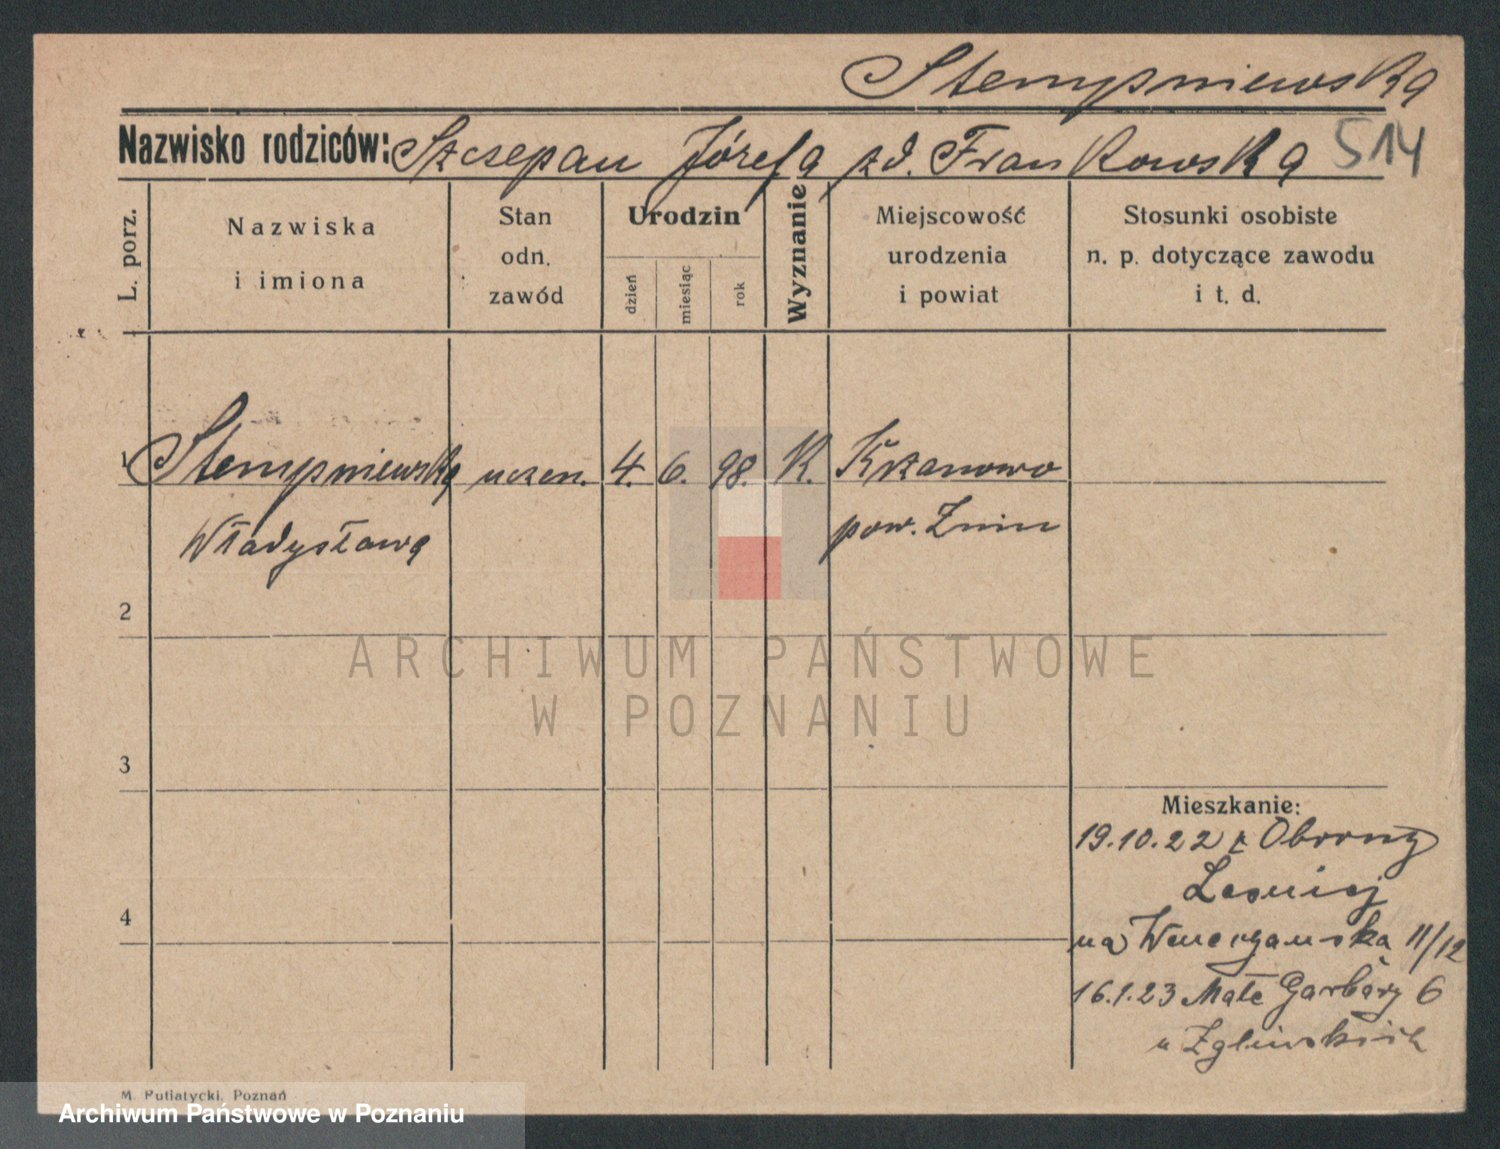 Stempniewska
Nazwisko rodziców: Szczepan Józefa zd. Frankowska 514
L. porz.
Nazwiska
i imiona
Stan
odn.
zawód
Urodzin
dzień
miesiąc
rok
Wyznanie
Miejscowość
urodzenia
i powiat
Stosunki osobiste
n. p. dotyczące zawodu
i t. d.
1 Stempniewska uczen. 4. 6. 98. K. Krzanowo
Władysława pow. Żnin
2
3
4
Mieszkanie:
19.10.22 z Oborny
Leśniej
na Wenecjańska 11/12
16.1.23 Małe Garbary 6
u Zgliwskich
ARCHIWUM PAŃSTWOWE
W POZNANIU
M. Putiatycki, Poznań
Archiwum Państwowe w Poznaniu